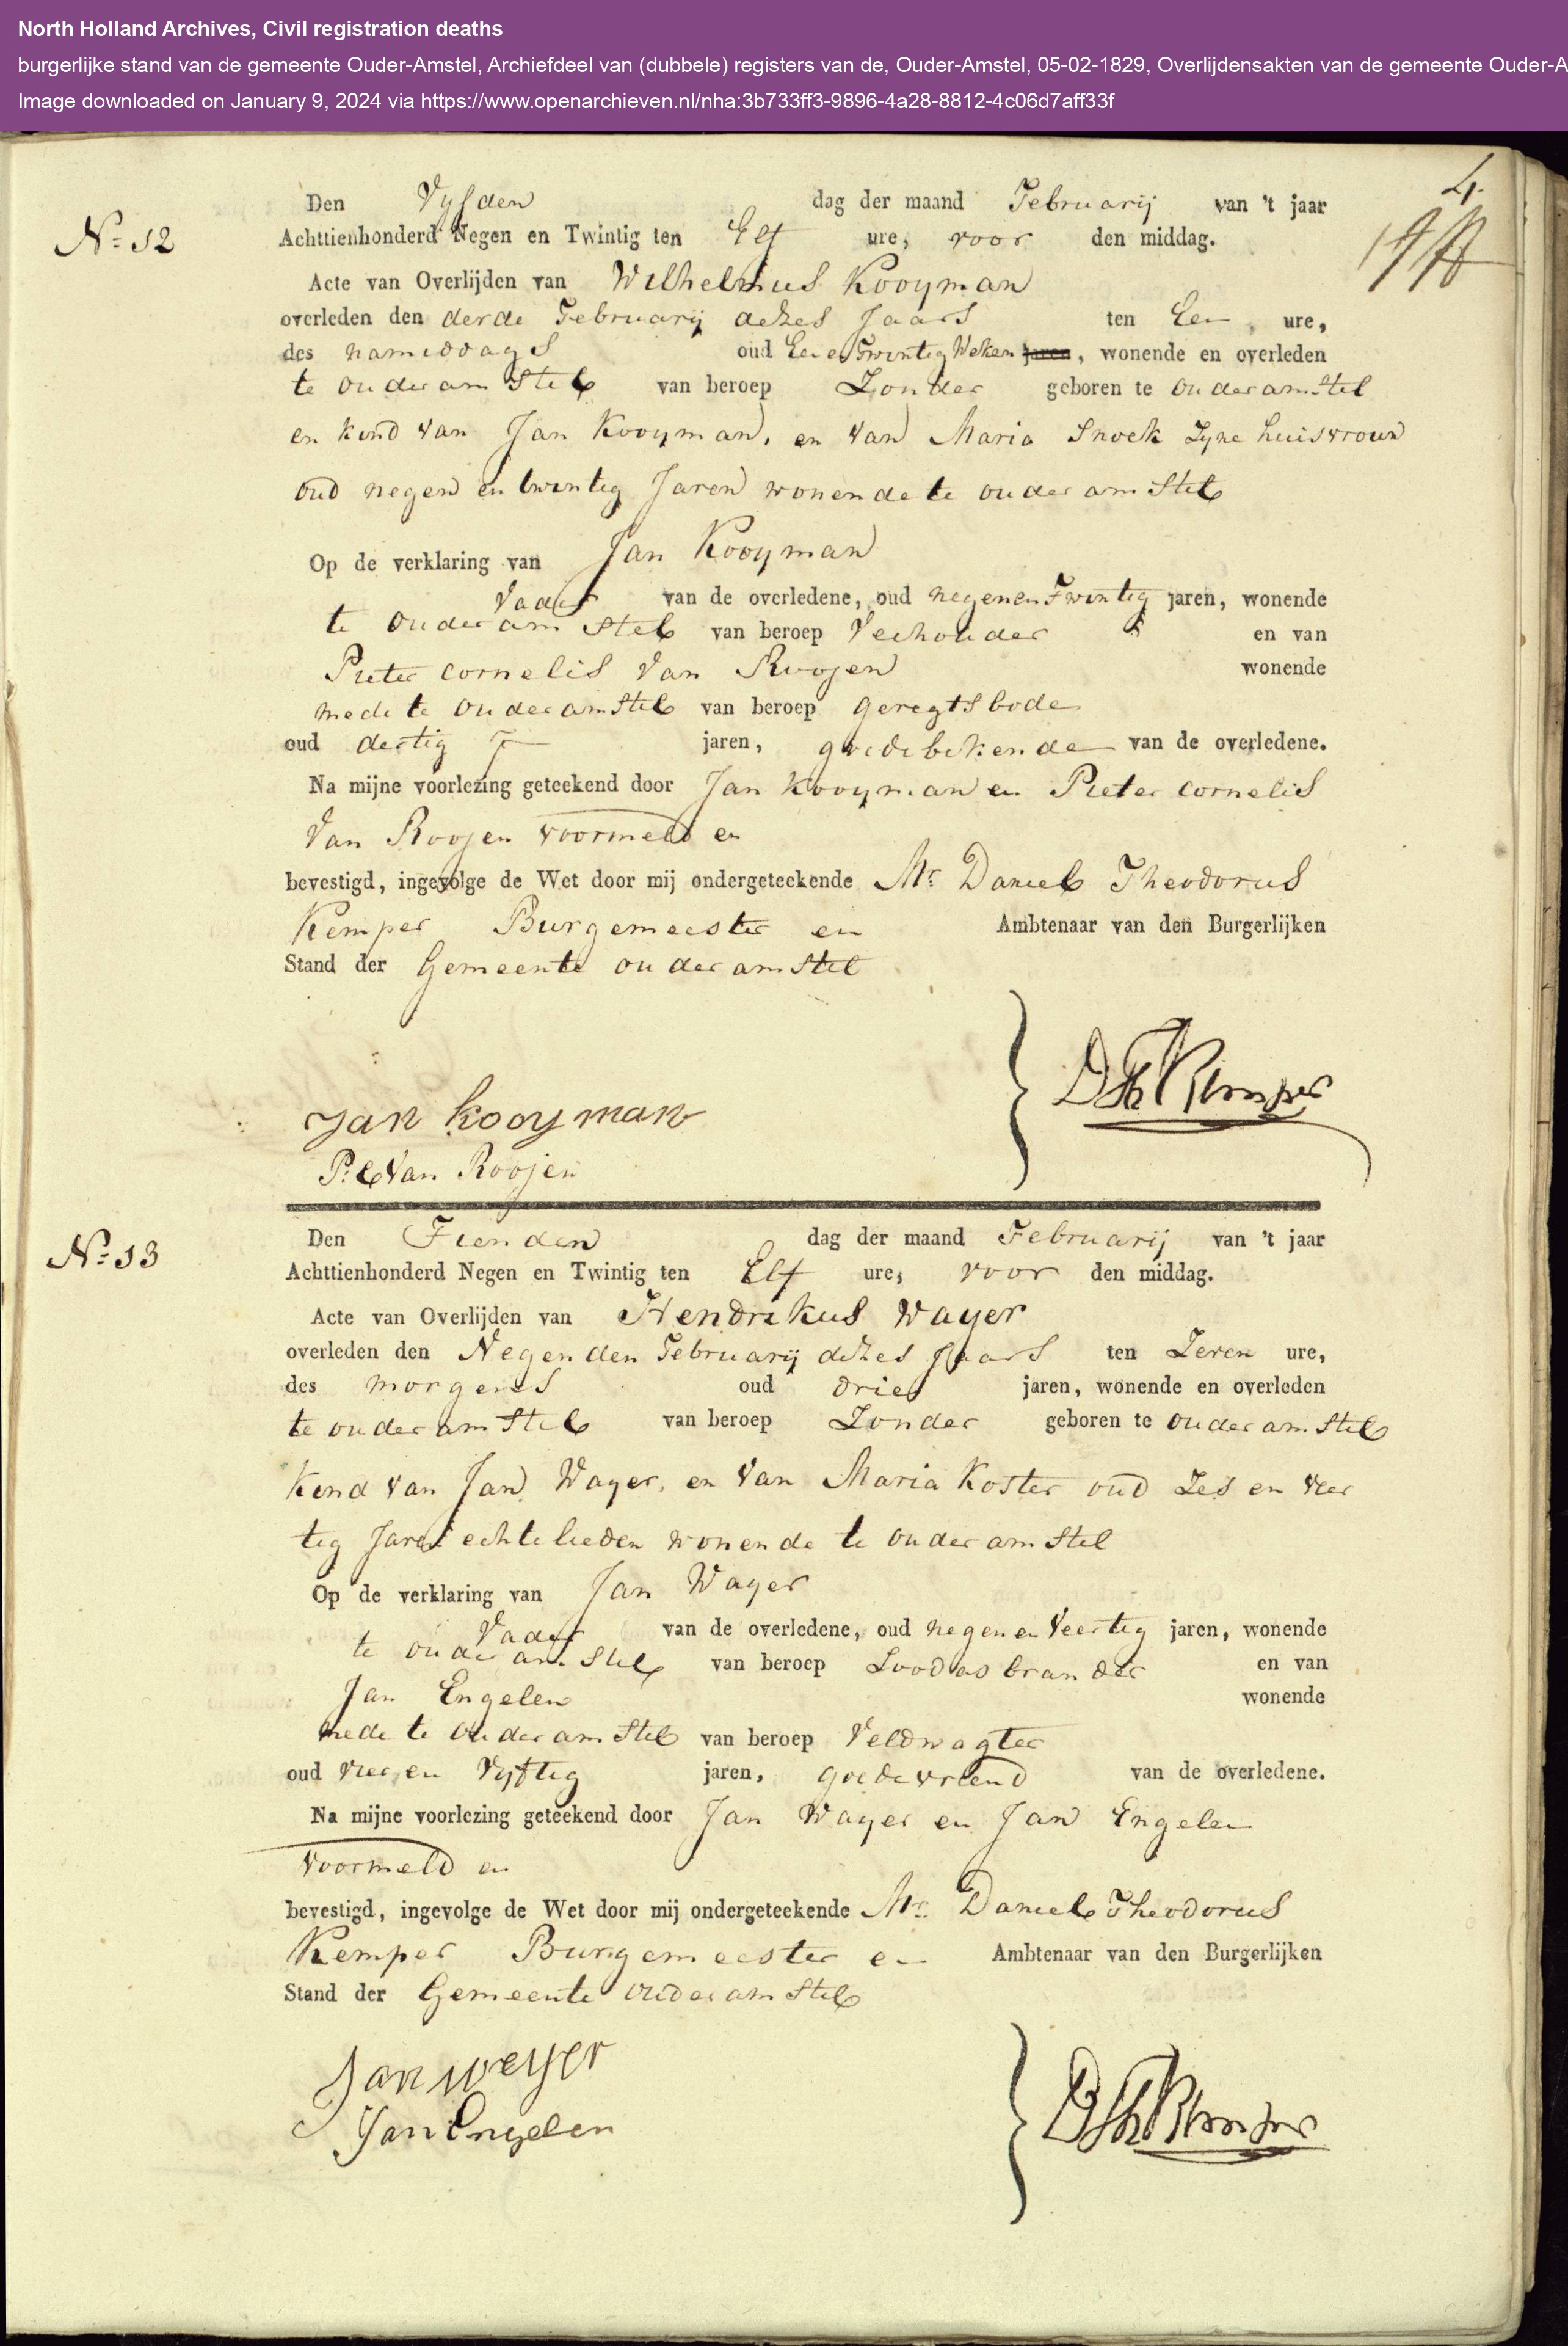 North Holland Archives, Civil registration deaths
burgerlijke stand van de gemeente Ouder-Amstel, Archiefdeel van (dubbele) registers van de, Ouder-Amstel, 05-02-1829, Overlijdensakten van de gemeente Ouder-A
Image downloaded on January 9, 2024 via https://www.openarchieven.nl/nha:3b733ff3-9896-4a28-8812-4c06d7aff33f
4.
No 12
Den Vyfden dag der maand Februarij van 't jaar
Achttienhonderd Negen en Twintig ten Elf ure, voor den middag.
Acte van Overlijden van Wilhelmus Kooyman
overleden den derde Februarij dezes Jaars ten Een, ure,
des namiddags oud Een en Twintig Weken jaren, wonende en overleden
te ouderamstel van beroep Zonder geboren te ouderamstel
en kind van Jan Kooyman, en van Maria Snoek Zyne huisvrouw
oud negen en twintig Jaren wonende te ouderamstel
Op de verklaring van Jan Kooyman
Vader van de overledene, oud negen en Twintig jaren, wonende
te ouderamstel van beroep Veehouder en van
Pieter Cornelis Van Roojen wonende
mede te ouderamstel van beroep geregtsbode
oud dertig jaren, goede bekende van de overledene.
Na mijne voorlezing geteekend door Jan Kooyman en Pieter Cornelis
Van Roojen voormeld en
bevestigd, ingevolge de Wet door mij ondergeteekende Mr Daniel Theodorus
Kemper Burgemeester en Ambtenaar van den Burgerlijken
Stand der Gemeente ouderamstel
DTh Kemper
Jan kooyman
P: C Van Roojen
No 13
Den Tienden dag der maand Februarij van 't jaar
Achttienhonderd Negen en Twintig ten Elf ure, voor den middag.
Acte van Overlijden van Hendrikus Wayer
overleden den Negenden Februarij dezes Jaars ten Zeven ure,
des morgens oud drie jaren, wonende en overleden
te ouderamstel van beroep Zonder geboren te ouderamstel
Kind van Jan Wayer, en van Maria Koster oud Zes en veer
tig Jaren echtelieden wonende te ouderamstel
Op de verklaring van Jan Wayer
Vader van de overledene, oud negen en Veertig jaren, wonende
te ouderamstel van beroep en van
Jan Engelen wonende
mede te ouderamstel van beroep Veldwagter
oud vier en Vyftig jaren, goede vriend van de overledene.
Na mijne voorlezing geteekend door Jan Wayer en Jan Engelen
voormeld en
bevestigd, ingevolge de Wet door mij ondergeteekende Mr. Daniel Theodorus
Kemper Burgemeester en Ambtenaar van den Burgerlijken
Stand der Gemeente ouderamstel
Jan weyer
Jan Engelen
DTh Kemper